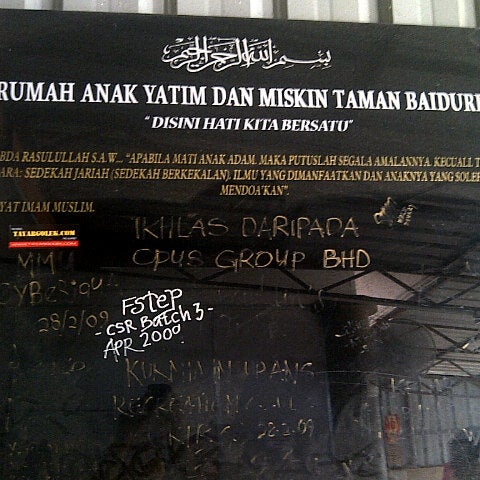 بسم الله الرحمن الرحيم
RUMAH ANAK YATIM DAN MISKIN TAMAN BAIDURI
"DISINI HATI KITA BERSATU"
BDA RASULULLAH S.A.W... "APABILA MATI ANAK ADAM, MAKA PUTUSLAH SEGALA AMALANNYA. KECUALI T
ARA: SEDEKAH JARIAH (SEDEKAH BERKEKALAN). ILMU YANG DIMANFAATKAN DAN ANAKNYA YANG SOLEH
MENDOA'KAN".
YAT IMAM MUSLIM.
IKHLAS DARIPADA
OPUS GROUP BHD
TAYARGOLEK.COM
MMU
CYBER
28/2/09
FSTEP
- CSR Batch 3 -
APR 2009
28.2.09